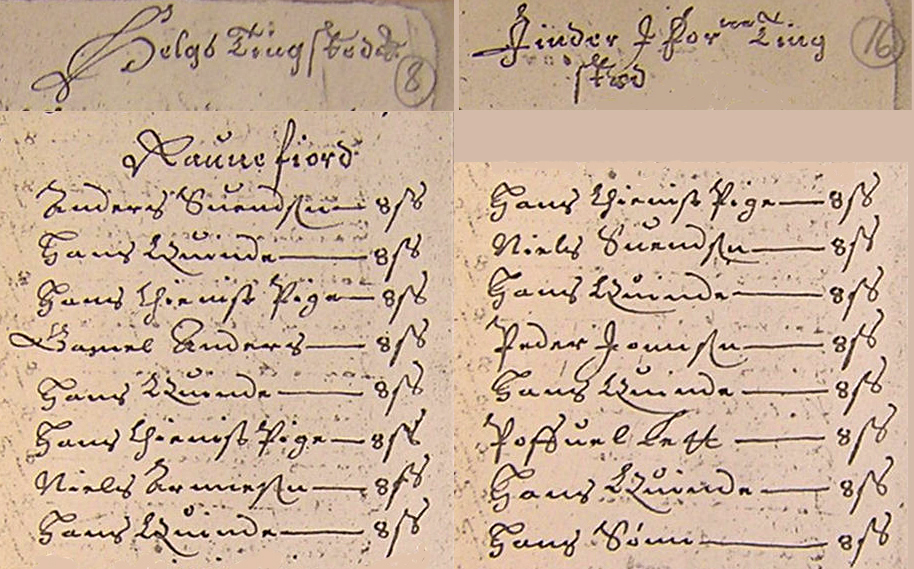 Helgø Tingsted
8
Raunefiord
Anders Suendsen 8 ſs
Hans Quinde 8 ſs
Hans thienist Pige 8 ſs
Gamel Anders 8 ſs
Hans Quinde 8 ſs
Hans thienist Pige 8 ſs
Niels Arnnesen 8 ſs
Hans Quinde 8 ſs
16
Hans thienist Pige 8 ſs
Niels Suendsen 8 ſs
Hans Quinde 8 ſs
Peder Jonnsen 8 ſs
Hans Quinde 8 ſs
Poffuel 8 ſs
Hans Quinde 8 ſs
Hans Sønn 8 ſs